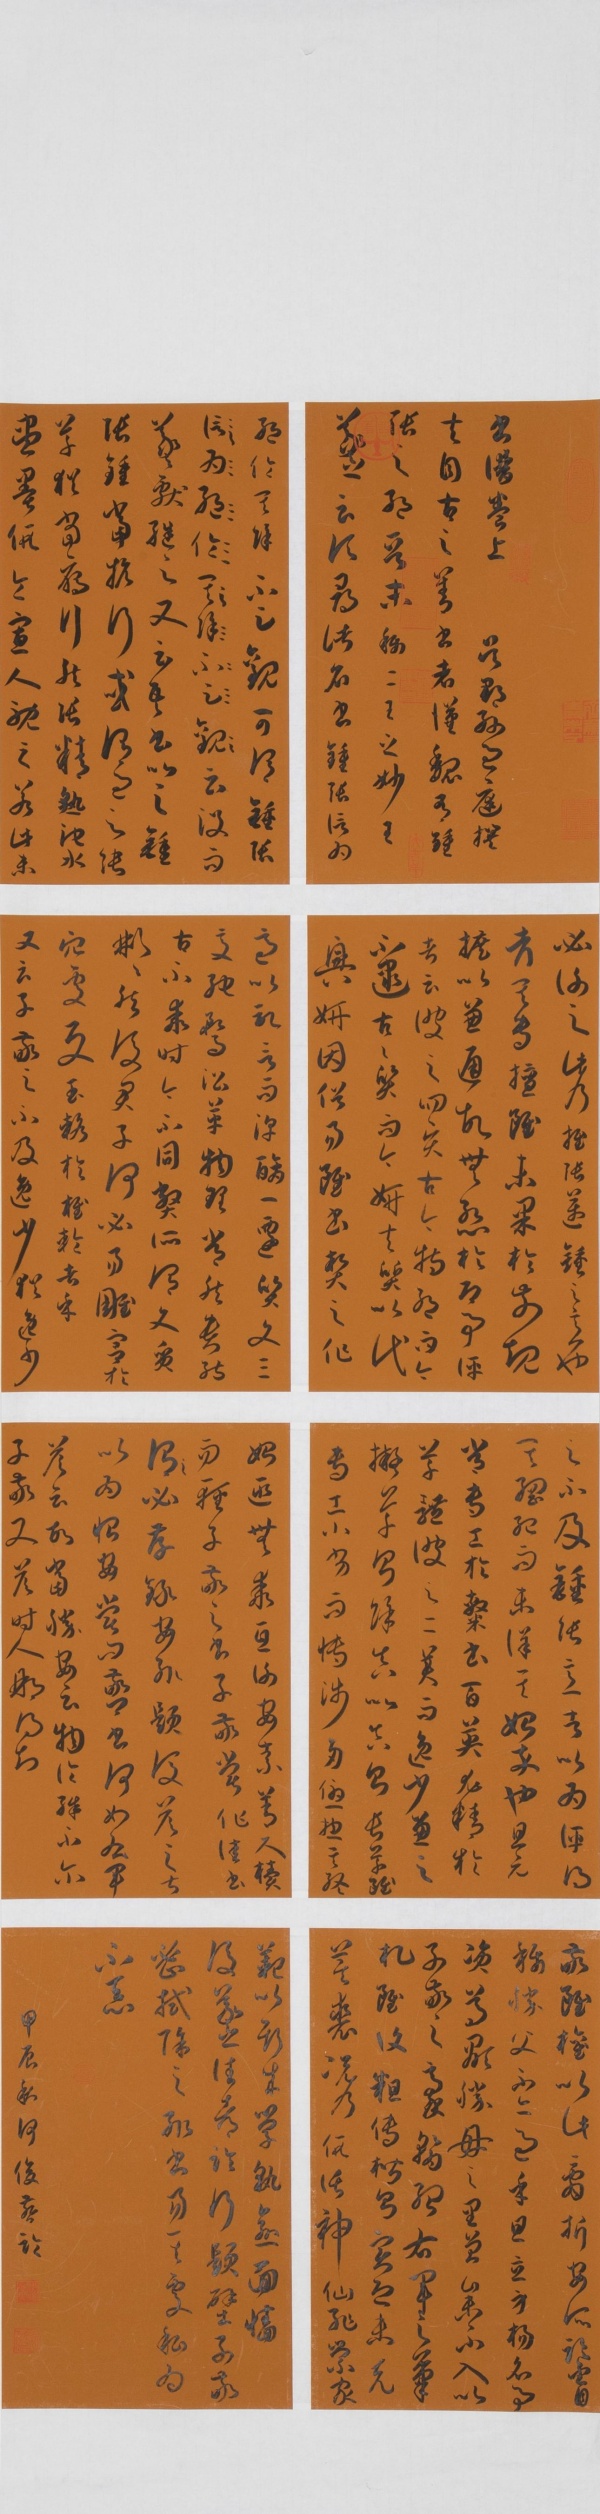 書譜卷上　吳郡孫過庭撰
夫自古之善書者漢魏有鍾
張之絕晉末稱二王之妙王
羲之云頃尋諸名書鍾張信為
絕倫其餘不足觀可謂鍾張
信為絕倫其餘不足觀云沒而
羲獻繼之又云吾書比之鍾
張鍾當抗行或謂過之張
草猶當雁行然張精熟池水
盡墨假令寡人耽之若此未
必謝之此乃推張邁鍾之意也
考其專擅雖未果於前規
摭以兼通故無慚於即事評
者云彼之四賢古今特絕而今
不逮古古質而今妍夫質以代
興妍因俗易雖書契之作
適以記言而淳醨一遷質文三
變馳騖沿革物理常然貴能
古不乖時今不同弊所謂文質
彬彬然後君子何必易雕宮於
穴處反玉輅於椎輪者乎
又云子敬之不及逸少猶逸少
之不及鍾張意者以為評得
其綱紀而未詳其始卒也且元
常專工於隸書百英尤精於
草體彼之二美而逸少兼之
擬草則餘真比真則長草雖
專工小劣而博涉多優總其終
始匪無乖互謝安素善尺牘
而輕子敬之書子敬嘗作佳書
謂必存錄安輒題後答之甚
以為恨安嘗問敬卿書何如右軍
答云故當勝安云物論殊不爾
子敬又答時人那得知
敬雖權以此辭折安所鑒自
稱勝父不亦過乎且立身揚名事
資尊顯勝母之里曾參不入以
子敬之豪翰紹右軍之筆
札雖復粗傳楷則實恐未克
箕裘況乃假託神仙恥崇家
範以斯成學孰愈面牆
後羲之往都臨行題壁子敬
密拭除之輒書易其處私為
不惡
甲辰秋何俊臨